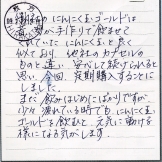 にんにく玉ゴールドは
が手作りで飲ませて
くれていた にんにく玉と良く
似ており 他社のカプセルの
ものと違い 安心して続けられると
思い 今回、定期購入することに
しました。
まだ 飲みはじめたばかりですが
少々 疲れている時でも、にんにく玉
ゴールドを飲むと 元気に動ける
様になる気がします。